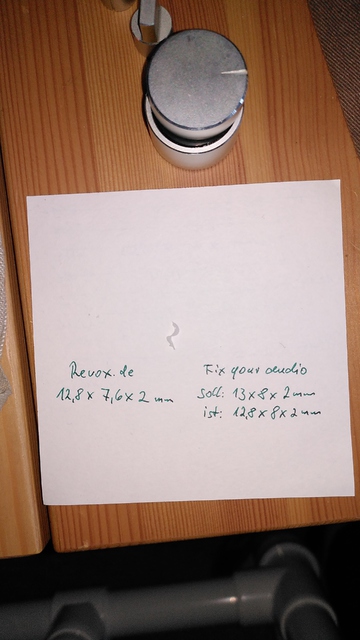 Revox.de
12,8 x 7,6 x 2 mm
Fix your audio
soll: 13 x 8 x 2 mm
ist: 12,8 x 8 x 2 mm